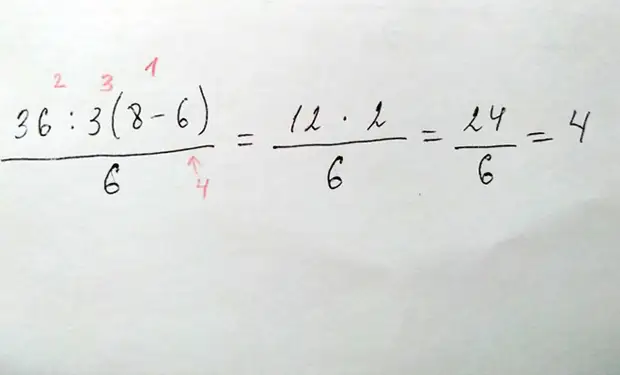 2 3 1
36 : 3(8 - 6) / 6 = 12 · 2 / 6 = 24 / 6 = 4
4